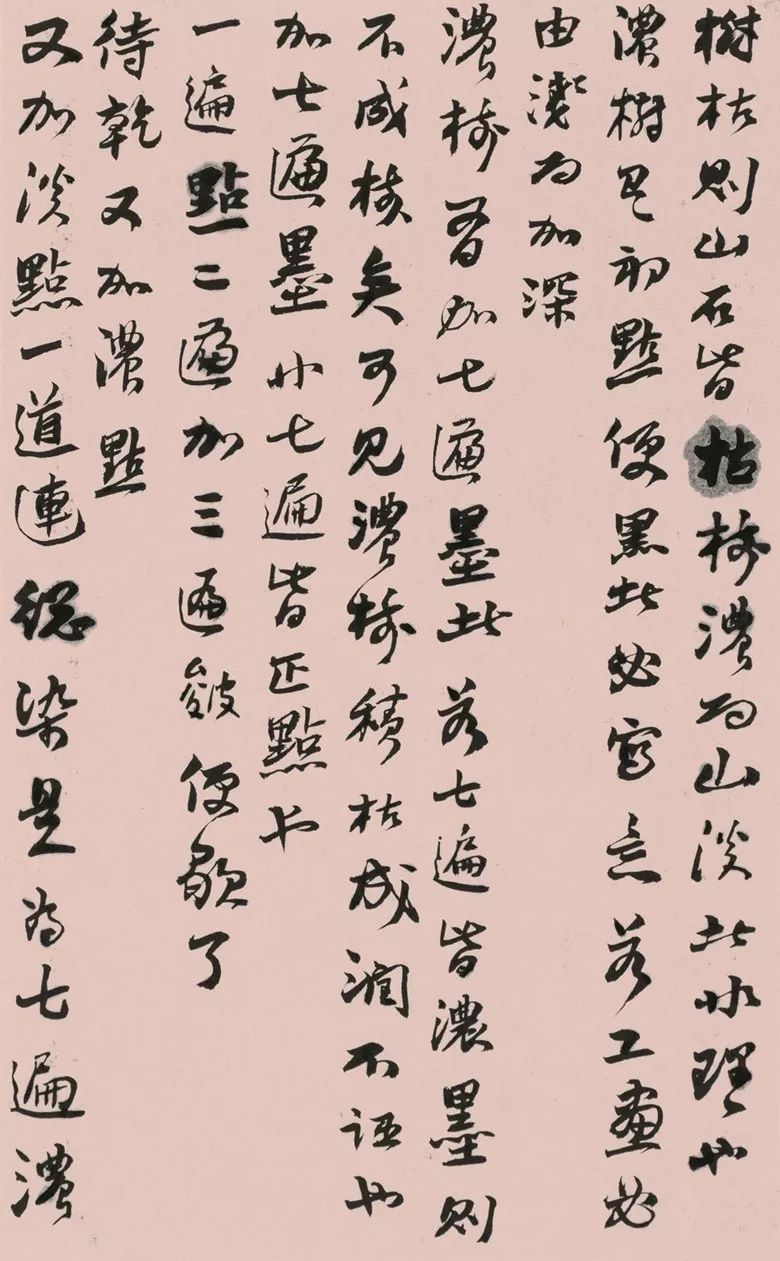 樹枯則山石皆枯樹濃而山淡此非理也
濃樹有初點便黑此必寫意若工畫必
由淺而加深
濃樹有加七遍墨此若七遍皆濃墨則
不成樹矣可見濃樹積枯成潤不誣也
加七遍墨非七遍皆正點也
一遍點二遍加三遍皴便歇了
待乾又加濃點
又加淡點一道連總染是為七遍濃